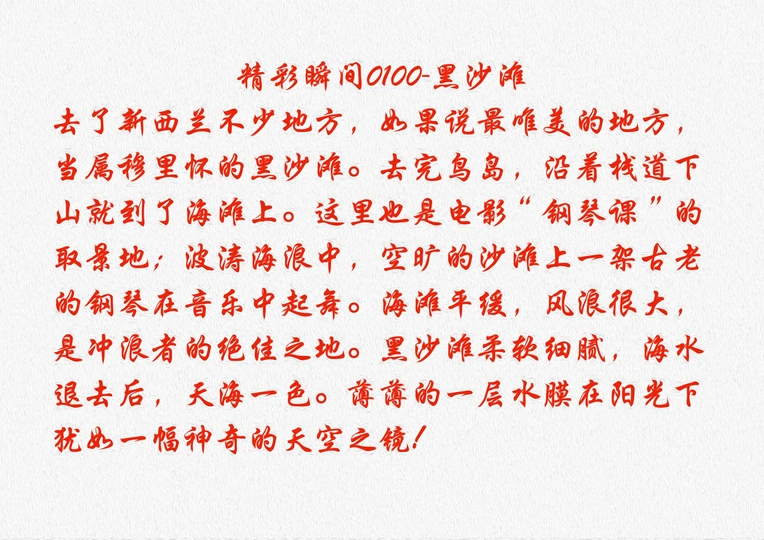 精彩瞬间0100-黑沙滩
去了新西兰不少地方，如果说最唯美的地方，
当属穆里怀的黑沙滩。去完鸟岛，沿着栈道下
山就到了海滩上。这里也是电影“钢琴课”的
取景地；波涛海浪中，空旷的沙滩上一架古老
的钢琴在音乐中起舞。海滩平缓，风浪很大，
是冲浪者的绝佳之地。黑沙滩柔软细腻，海水
退去后，天海一色。薄薄的一层水膜在阳光下
犹如一幅神奇的天空之镜！